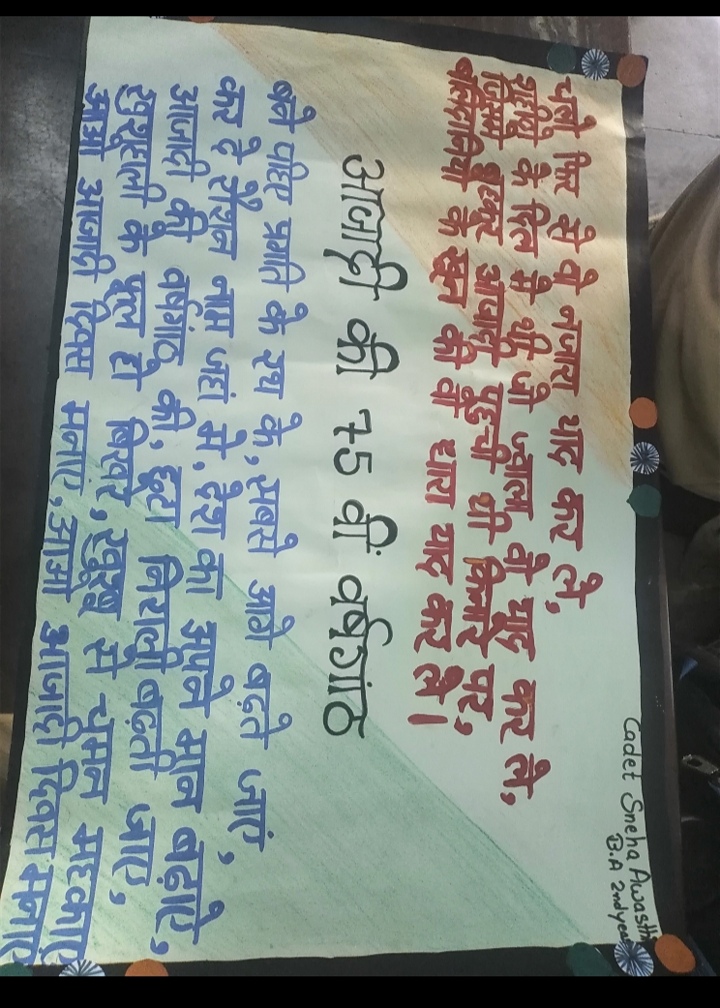 Cadet Sneha Awasthi
B.A 2nd year
चलो फिर से वो नजारा याद कर ले,
शहीदों के दिल में थी जो ज्वाला वो याद कर ले,
जिसमें बहकर आजादी पहुंची थी किनारे पर,
बलिदानियों के खून की वो धारा याद कर ले।
आजादी की 75 वीं वर्षगांठ
बने पहिए प्रगति के रथ के, सबसे आगे बढ़ते जाएं,
कर दे रोशन नाम जहां मे, देश का अपने मान बढ़ाएं,
आजादी की वर्षगांठ की, छटा निराली बढ़ती जाए,
खुशहाली के फूल हो बिखर, खुश्बू से चमन महकाएं
आओ आजादी दिवस मनाएं, आओ आजादी दिवस मनाएं